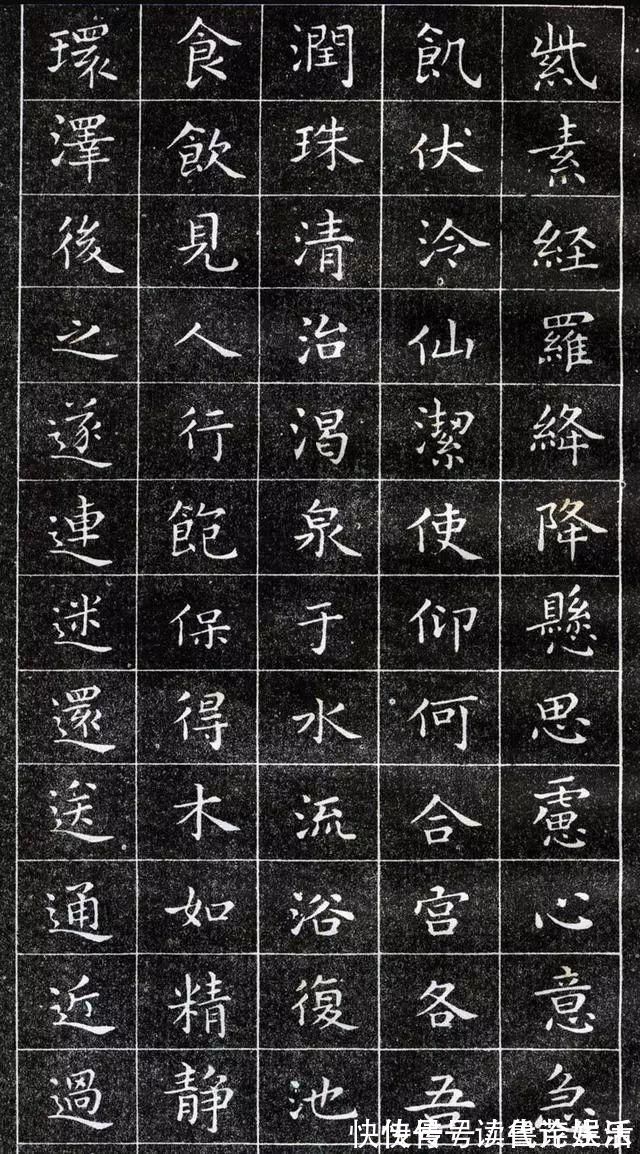 紫素経羅絳降懸思慮心意急
飢伏泠仙潔使仰何合宮各吾
潤珠清治渴泉于水流浴復池
食飲見人行飽保得木如精静
環澤後之遂連迷還送通近過